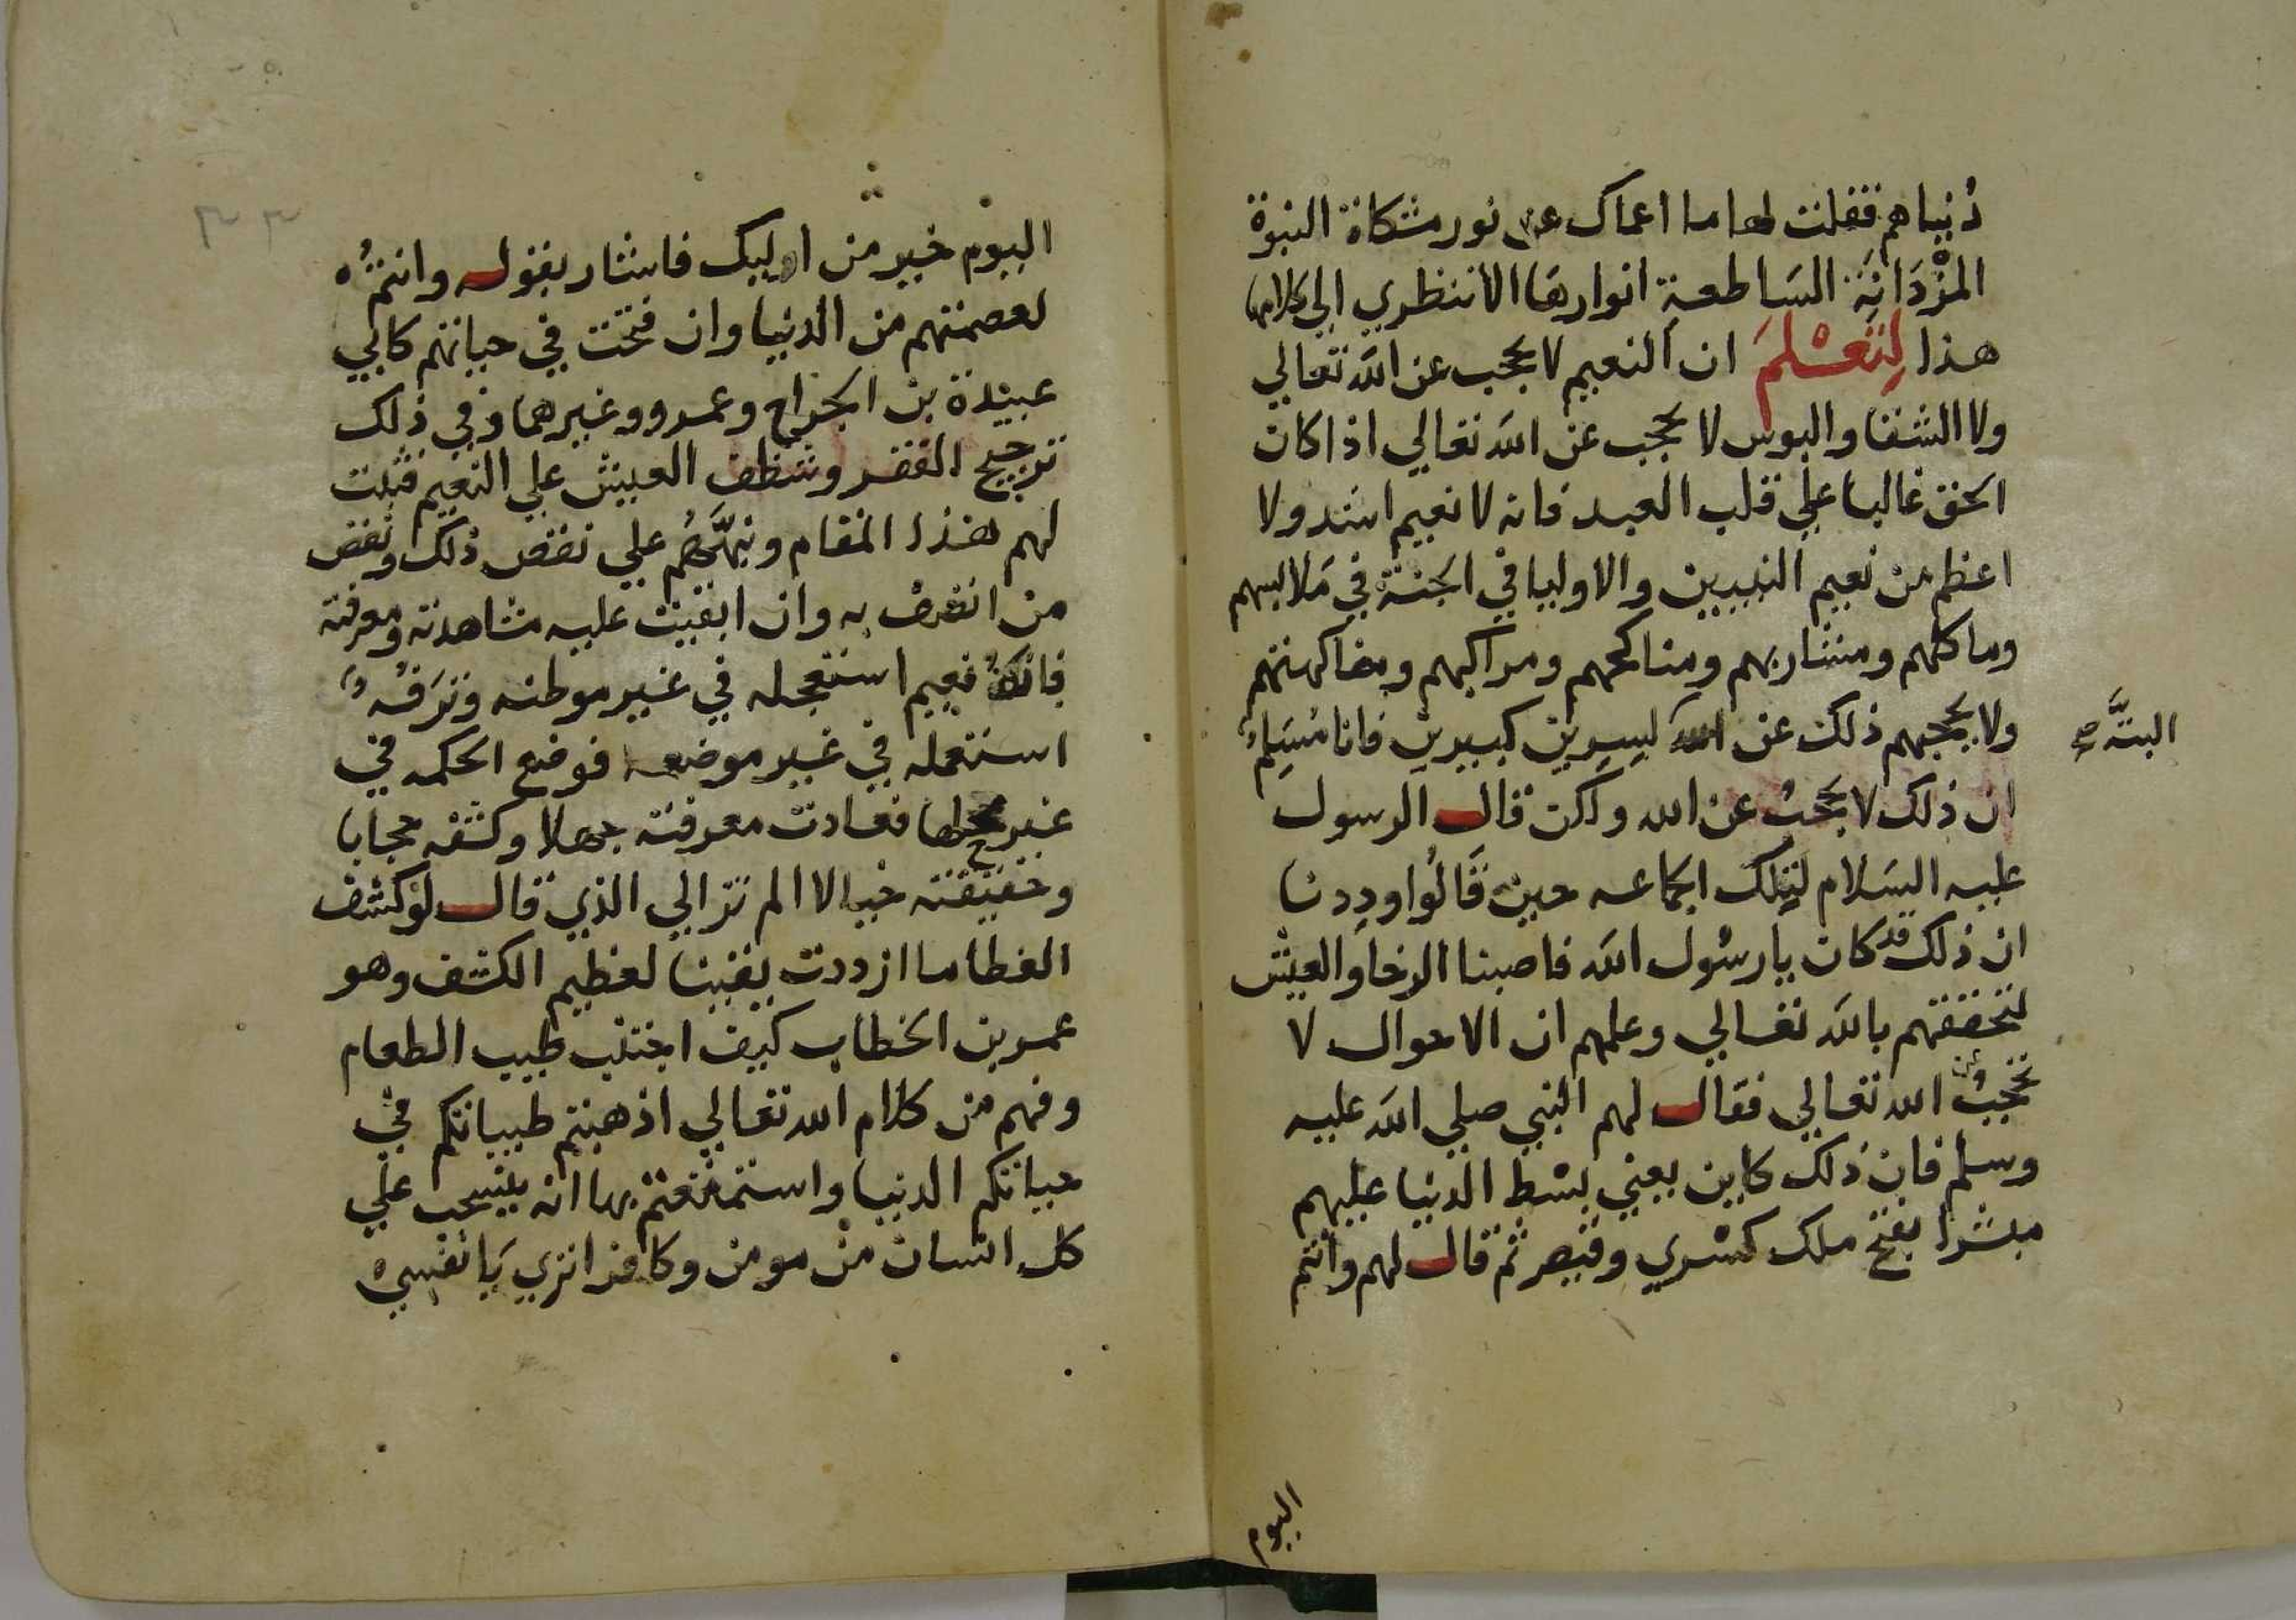 دُنياهم فقلت لها ما اعماك عن نور مشكاة النبوة
المزدانة السَاطعةِ انوارهَا الا تنظري الي كلامها
هذا لِتَعْلمَ ان النعيم لا يحجب عن الله تعالي
ولا الشقا والبوس لا يحجب عن الله تعالي اذا كان
الحق غالبا علي قلب العبد فانه لا نعيم اشد ولا
اعظم من نعيم النبيين والاوليا في الجنة في مَلابسهم
وماكلهم ومشاربهم ومناكحهم ومراكبهم ومفاكهتهم
ولا يحجبهم ذلك عن الله ليسِرين كبيرين فانا مُسَلِمُ
البتَّه صح
ان ذلك لا يحجبُ عن الله ولكن قال الرسول
عليه السَلام لتِلك الجماعه حين قَالُوا ودِدنا
ان ذلك قد كان يا رسُول الله فاصبنا الرخا والعيش
لتحققهم بالله تعالي وعلمهم ان الاحوال لا
تحجبُ عن الله تعالي فقال لهم النبي صلي الله عليه
وسلم فان ذلك كاين يعني بسْط الدنيا عليهم
مبشرا بفتح ملك كسْري وقيصر ثم قال لهم وانتم
اليوم
٣٣
اليوم خير من اوليك فاشار بقوله وانتمُ
لعصمتهم من الدنيا وان فتحت في حياتهم كابي
عبيْدة بن الجراح وعمرو وغيرهما وفي ذلك
ترجيح الفقر وشظف العيش علي النعيم فثبت
لهم هذا المقام ونبَّهَهُم علي نقص ذلك ونقص
من اتصف به وان ابقيت عليه مشاهدته ومعرفته
فانهُ نعيم استعجله في غير موطنه وتَرَفُهُ
استعمله في غير موضعه فوضع الحكمه في
غير محلها فعادت معرفته جهلا وكشفه حجابا
وحقيقته خيالا الم تر الي الذي قال لو كشف
الغطا ما ازددت يقينا لعظيم الكشف وهو
عمر بن الخطاب كيف اجتنب طيب الطعام
وفهم من كلام الله تعالي اذهبتم طيباتكم في
حياتكم الدنيا واستمتعتم بها انه ينسحب علي
كل انسان من مومن وكافر اتري يَا نفسي